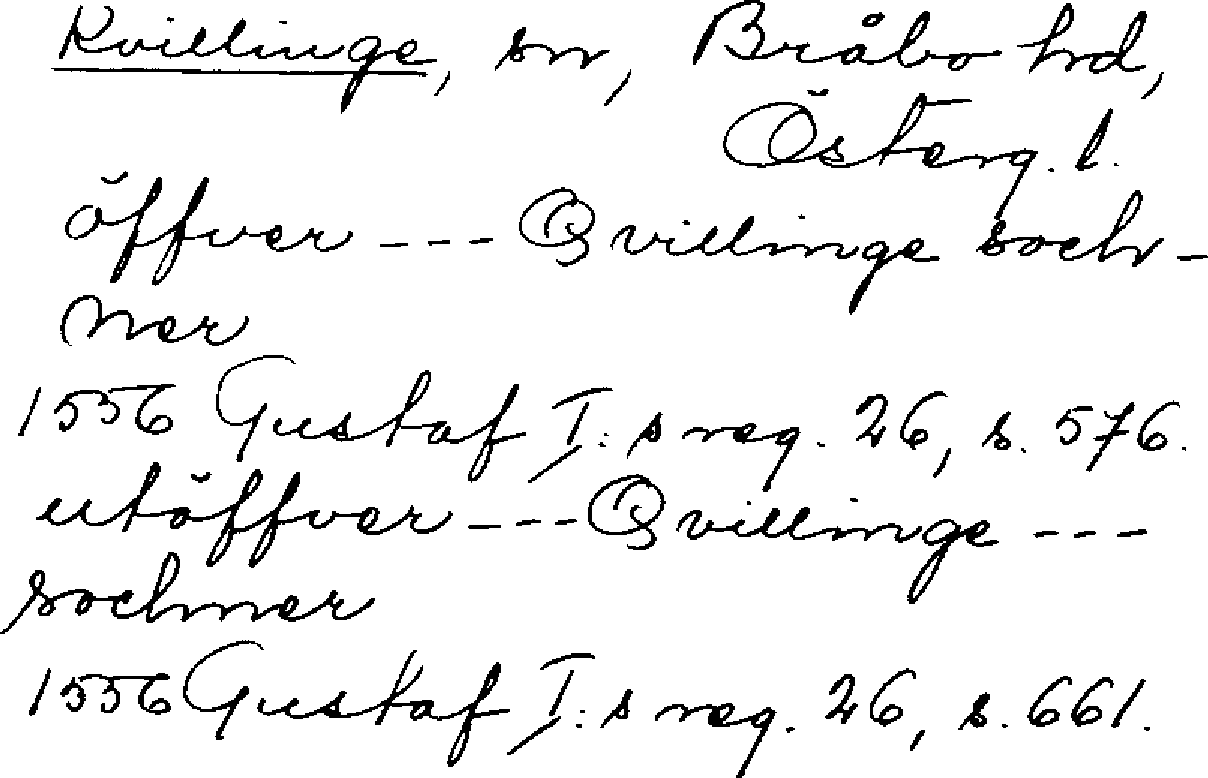 Kvillinge, sn, Bråbo hd,
Österg. l.
öffver --- Qvillinge soch-
ner
1556 Gustaf I:s reg. 26, s. 576.
utöffver --- Qvillinge ---
sochner
1556 Gustaf I:s reg. 26, s. 661.